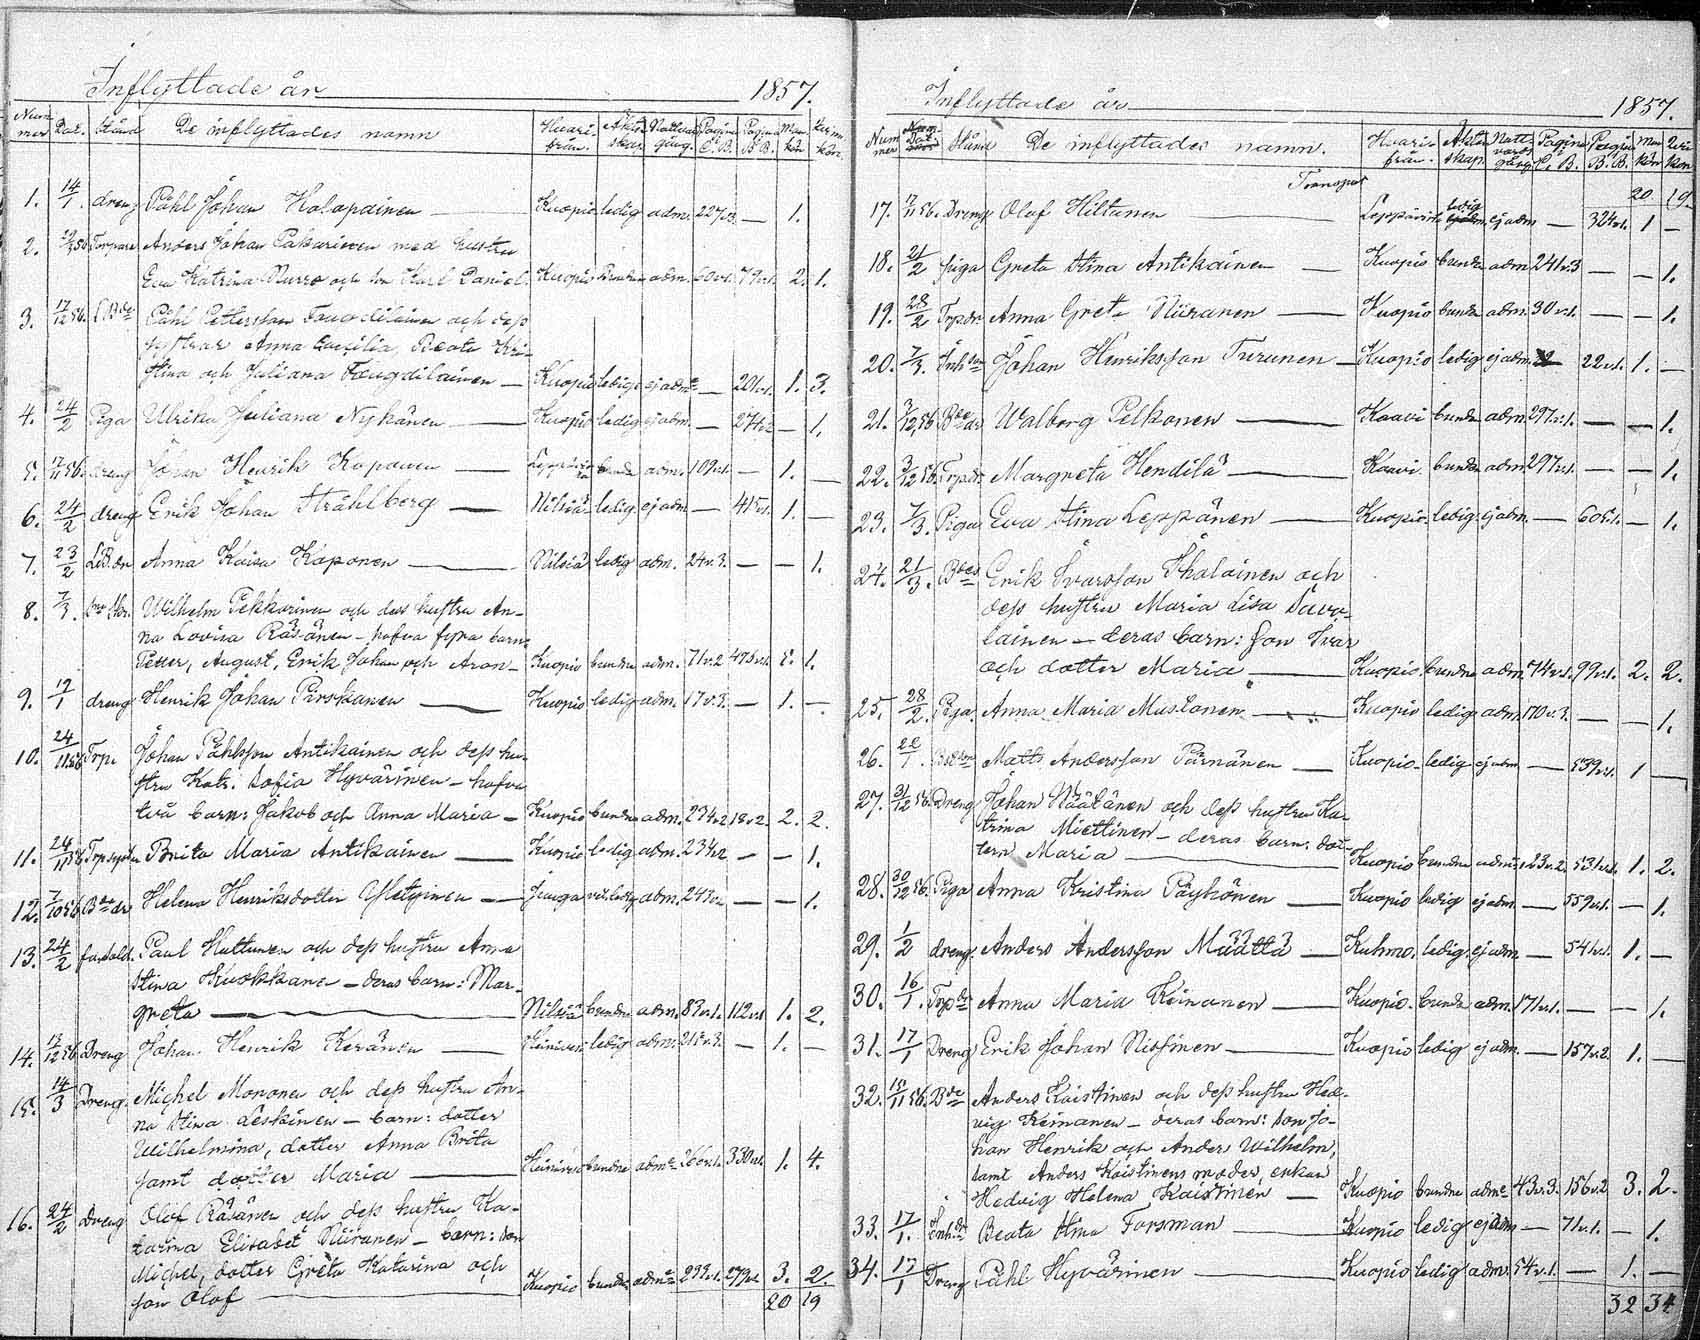 Inflyttade år 1857.
Num mer Dat. Stånd De inflyttades namn Hvari-från. Äkten-skap. Nattvards-gång. Pagina C. B. Pagina B. B. Man-kön Qvinn-kön.
1. 14/1. dreng Påhl Johan Holopainen Kuopio ledig adm. 227v.3. — 1.
2. Torpare Anders Johan Pakarinen med hustru
Eva Katrina Murro och son Karl Daniel. Kuopio adm. 60v.1. 79v.1. 2. 1.
3. 17/12 56. Påhl Pettersson Tougdilainen och dess
systrar Anna Caecilia, Beata Kri-
stina och Juliana Tougdilainen — Kuopio ledige ej adm. — 201v.1. 1. 3.
4. 24/2 Piga Ulrika Juliana Nykänen Kuopio ledig ej adm. — 274v.2 — 1.
5. 17/11 56. dreng Johan Henrik Koponen adm. 109v.1. — 1. —
6. 24/2 dreng Erik Johan Ståhlberg Nilsiä ledig ej adm. — 415v.1. 1. —
7. 23/2 Anna Kaisa Koponen Nilsiä ledig adm. 24v.3. — — 1.
8. 7/3. Wilhelm Pekkarinen och dess hustru An-
na Lovisa Räsänen — hafva fyra barn:
Petter, August, Erik Johan och Aron — Kuopio bundne adm. 71v.2 475v.1. 5. 1.
9. 19/1 dreng Henrik Johan Pirskanen Kuopio ledig adm. 17v.3. — 1. —
10. 24/11 56 Torp. Johan Påhlsson Antikainen och dess hu-
stru Katr. Sofia Hyvärinen — hafva
två barn: Jakob och Anna Maria — Kuopio bundne adm. 234v.2 18v.2. 2. 2.
11. 24/11 56 Brita Maria Antikainen Kuopio ledig adm. 234v.2 — — 1.
12. 7/10 56 Helena Henriksdotter Jeuga adm. 243v.2 — — 1.
13. 24/2 Paul Huttunen och dess hustru Anna
Stina Kuokkanen — deras barn: Mar-
greta Nilsiä bundne adm. 83v.1. 112v.1 1. 2.
14. 17/12 56 Dreng Johan Henrik Keränen ledig adm. 215v.3. — 1. —
15. 14/3 Dreng. Michel Mononen och dess hustru An-
na Stina Leskinen — barn: dotter
Wilhelmina, dotter Anna Brita
samt dotter Maria bundne adm. 266v.1. 330v.1. 1. 4.
16. 24/2 Dreng Olof Räsänen och dess hustru Ka-
tarina Elisabet Niiranen — barn: son
Michel, dotter Greta Katarina och
son Olof Kuopio bundne adm. 299v.1. 279v.1 3. 2.
20 19
Inflyttade år 1857.
Num mer Dat. Stånd De inflyttades namn. Hvari-från. Äkten-skap. Natt-vards-gång. Pagina C. B. Pagina B. B. Man kön Qvin kön
Transport 20 19.
17. 17/11 56. Dreng Olof Hiltunen ledig ej adm — 324v.1. 1 —
18. 21/2 piga Greta Stina Antikainen Kuopio bunden adm 241v.3 — — 1.
19. 28/2 Anna Greta Niiranen Kuopio bunden adm. 30v.1. — — 1.
20. 7/3. Johan Henriksson Turunen Kuopio ledig ej adm. 22v.1. 1. —
21. 3/12 56 Walborg Pelkonen Kaavi bunden adm. 297v.1. — — 1.
22. 3/12 56. Margreta Hendilä Kaavi bunden adm. 297v.1. — — 1.
23. 7/3. Piga Eva Stina Leppänen Kuopio ledig ej adm. — 605v.1. — 1.
24. 21/3. Erik Ivarsson Tholainen och
dess hustru Maria Lisa Savo-
lainen — deras barn: son Ivar
och dotter Maria Kuopio bundne adm. 74v.1. 99v.1. 2. 2.
25. 28/2. Piga. Anna Maria Mustonen Kuopio ledig adm. 170v.3. — — 1.
26. 22/1. Matts Andersson Pärnänen Kuopio ledig ej adm — 539v.1. 1 —
27. 31/12 56. Dreng Johan Väätänen och dess hustru Ka-
trina Miettinen — deras barn: dot-
tern Maria Kuopio bundne adm. 123v.2. 531v.1. 1. 2.
28. 30/12 56. Piga Anna Kristina Pöyhönen Kuopio ledig ej adm. — 559v.1. — 1.
29. 1/2 dreng. Anders Andersson Määttä Kuhmo. ledig. ej adm. — 541v.1. 1. —
30. 16/1. Anna Maria Keinanen Kuopio. bunden adm. 171v.1. — — 1.
31. 17/1 Dreng Erik Johan Nissinen Kuopio ledig ej adm. — 157v.2. 1. —
32. 15/11 56. Anders Kaistinen och dess hustru Hed-
vig Keinanen — deras barn: son Jo-
han Henrik och Anders Wilhelm,
samt Anders Kaistinens moder, enkan
Hedvig Helena Kaistinen Kuopio bundne adm. 43v.3. 156v.2 3. 2.
33. 17/1. Beata Stina Forsman Kuopio ledig ej adm — 71v.1. — 1.
34. 17/1 Dreng Påhl Hyvärinen Kuopio ledig adm. 54v.1. — 1. —
32 34